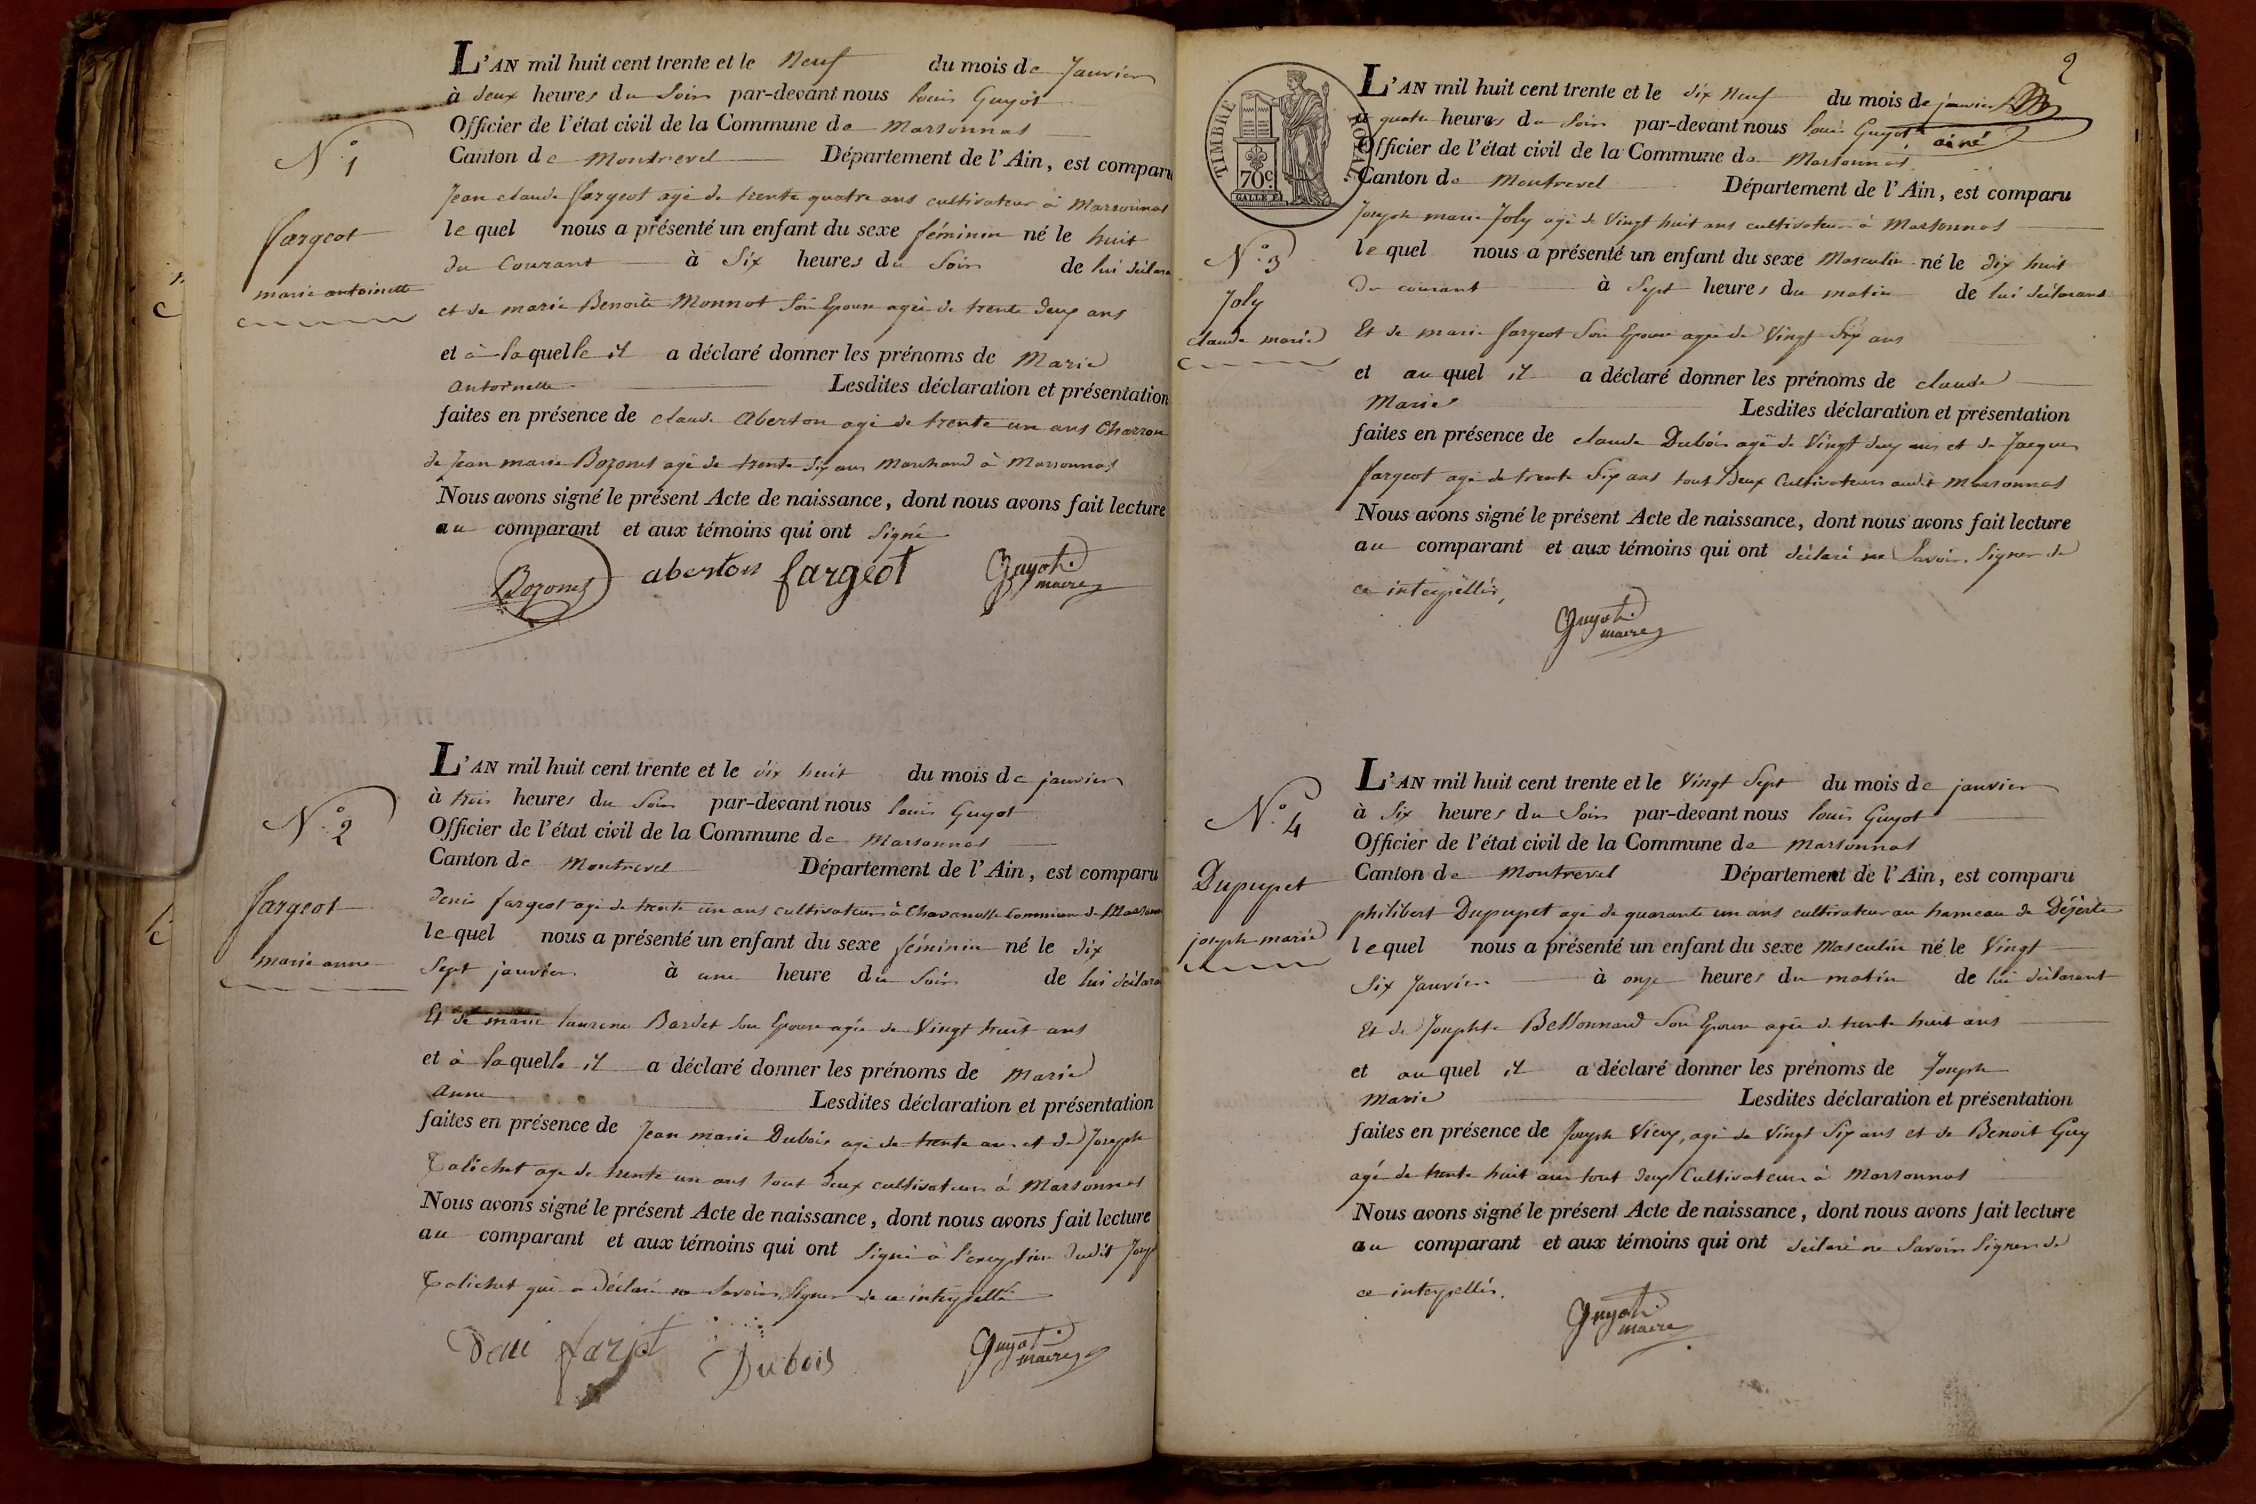 L'AN mil huit cent trente et le Neuf du mois de Janvier
à deux heures du Soir par-devant nous louis Guyot
Officier de l'état civil de la Commune de Marsonnas
Canton de Montrevel Département de l'Ain, est comparu
Jean claude fargeot agé de trente quatre ans cultivateur à Marsonnas
le quel nous a présenté un enfant du sexe féminin né le huit
du Courant à Six heures du Soir de lui déclara
et de marie Benoite Monnot Son Epouse agée de trente deux ans
et à laquelle il a déclaré donner les prénoms de Marie
antoinette Lesdites déclaration et présentation
faites en présence de claude Aberton agé de trente un ans Charron
de Jean marie Bozonet agé de trente Six ans Marchand à Marsonnas
Nous avons signé le présent Acte de naissance, dont nous avons fait lecture
au comparant et aux témoins qui ont Signé
Bozonet aberton fargeot Guyot
maire
N.° 1
fargeot
marie antoinette
L'AN mil huit cent trente et le dix huit du mois de janvier
à trois heures du Soir par-devant nous louis Guyot
Officier de l'état civil de la Commune de Marsonnas
Canton de Montrevel Département de l'Ain, est comparu
denis fargeot agé de trente un ans cultivateur à Chavanotte Commune de Marsonn
le quel nous a présenté un enfant du sexe féminin né le dix
Sept janvier à une heure du Soir de lui déclara
Et de marie laurence Bardet Son Epouse agée de Vingt huit ans
et à laquelle il a déclaré donner les prénoms de Marie
anne Lesdites déclaration et présentation
faites en présence de Jean marie Dubois agé de trente ans et de Joseph
Calichet age de trente un ans tout deux cultivateurs à Marsonnas
Nous avons signé le présent Acte de naissance, dont nous avons fait lecture
au comparant et aux témoins qui ont Signé à l'exception dudit Josep
Calichet qui a déclaré ne Savoir Signer de ce interpellé
Deni farjot Dubois Guyot
maire
N.° 2
fargeot
marie anne
2
TIMBRE ROYAL
70c.
L'AN mil huit cent trente et le dix Neuf du mois de janvier
à quatre heures du Soir par-devant nous louis Guyot ainé
Officier de l'état civil de la Commune de Marsonnas
Canton de Montrevel Département de l'Ain, est comparu
Joseph marie Joly agé de Vingt huit ans cultivateur à Marsonnas
le quel nous a présenté un enfant du sexe Masculin né le dix huit
du courant à Sept heures du matin de lui déclarant
Et de marie fargeot Son Epouse agée de Vingt Six ans
et au quel il a déclaré donner les prénoms de claude
Marie Lesdites déclaration et présentation
faites en présence de claude Dubois agé de Vingt deux ans et de Jacques
fargeot agé de trente Six ans tout deux Cultivateurs audit Marsonnas
Nous avons signé le présent Acte de naissance, dont nous avons fait lecture
au comparant et aux témoins qui ont déclaré ne Savoir Signer de
ce interpellés,
Guyot
maire
N.° 3
Joly
claude marie
L'AN mil huit cent trente et le Vingt Sept du mois de janvier
à Six heures du Soir par-devant nous louis Guyot
Officier de l'état civil de la Commune de Marsonnas
Canton de Montrevel Département de l'Ain, est comparu
philibert Dupupet agé de quarante un ans cultivateur au hameau de
le quel nous a présenté un enfant du sexe Masculin né le Vingt
Six Janvier à onze heures du matin de lui déclarant
Et de Josephte Bellonnard Son Epouse agée de trente huit ans
et au quel il a déclaré donner les prénoms de Joseph
Marie Lesdites déclaration et présentation
faites en présence de Joseph Vieux, agé de Vingt Six ans et de Benoit Guy
agé de trente huit ans tout deux Cultivateurs à Marsonnas
Nous avons signé le présent Acte de naissance, dont nous avons fait lecture
au comparant et aux témoins qui ont déclaré ne Savoir Signer de
ce interpellés.
Guyot
maire
N.° 4
Dupupet
joseph marie